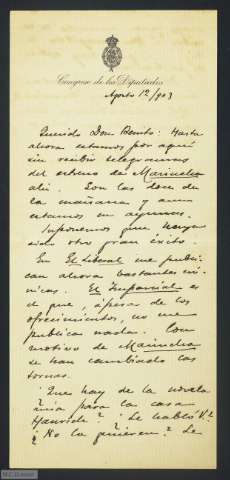 Congreso de los Diputados
Agosto 12/903
Querido Don Benito: Hasta
ahora estamos por aquí
sin recibir telegramas
del estreno de Mariucha
ahí. Son las doce de
la mañana y aun
estamos en ayunas.
Suponemos que haya
sido otro gran éxito.
En El Liberal me publi-
can ahora bastantes cró-
nicas. El Imparcial es
el que, ápesar de los
ofrecimientos, no me
publica nada. Con
motivo de Mariucha
se han cambiado las
tornas.
¿Que hay de la novela
mia para la casa
? ¿Le habló V.?
¿No la quieren? Le